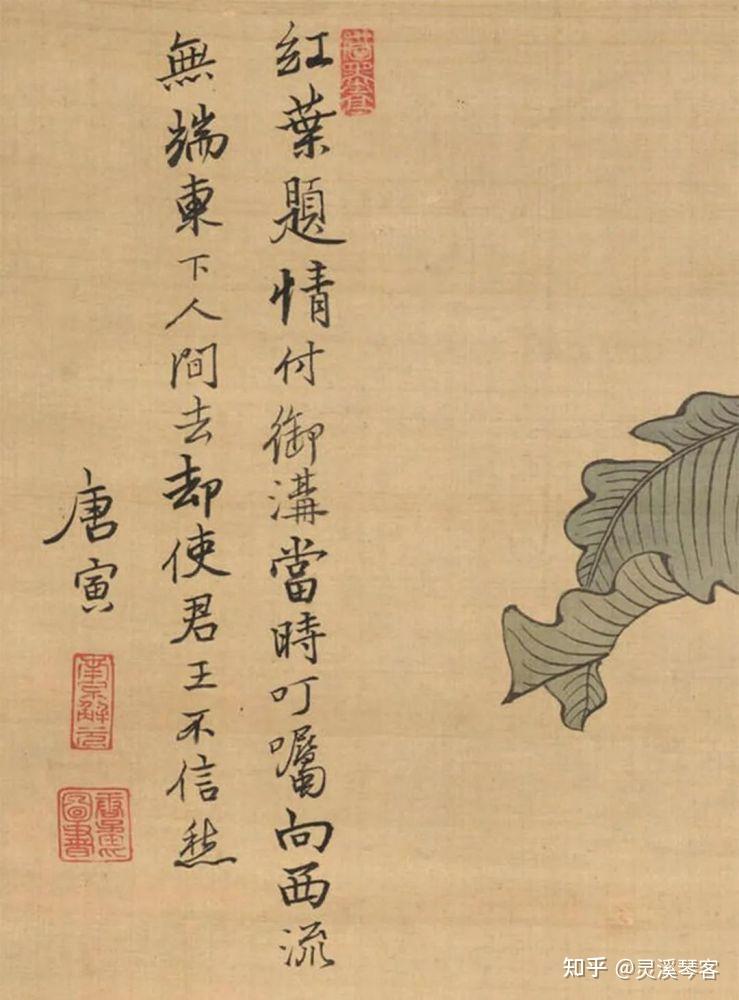 紅葉題情付御溝當時叮囑向西流
無端東下人間去却使君王不信愁
唐寅
南京解元
圖書
知乎 @灵溪琴客